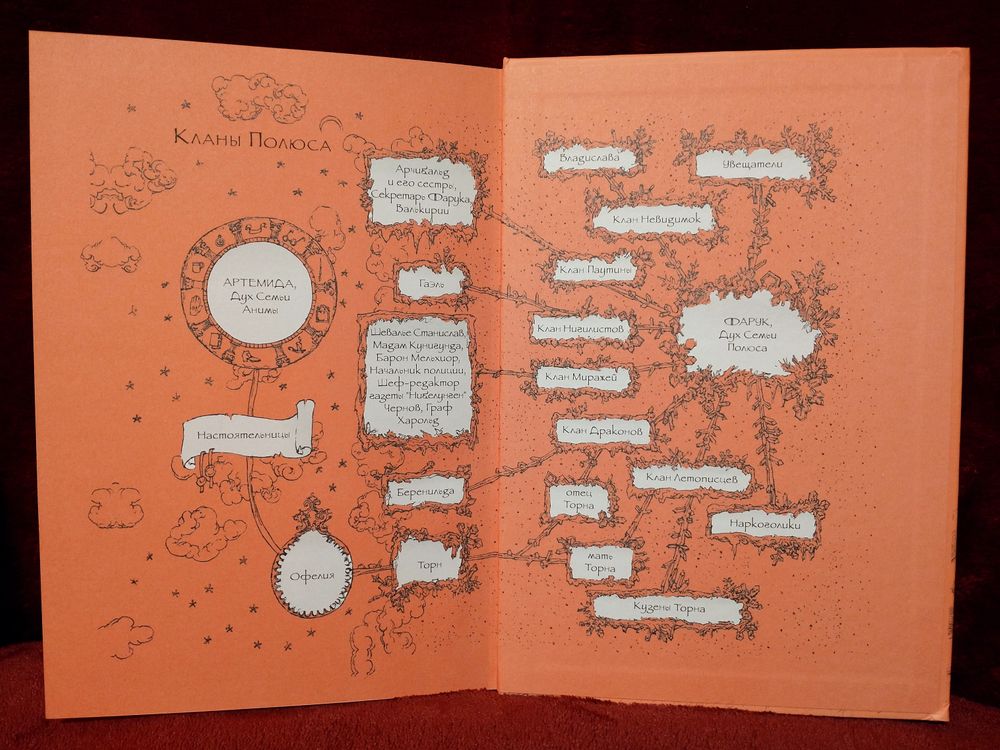 Кланы Полюса
Арчибальд
и его сестры,
Секретарь Фарука,
Валькирии
АРТЕМИДА,
Дух Семьи
Анимы
Гаэль
Шевалье Станислав,
Мадам Кунигунда,
Барон Мельхиор,
Начальник полиции,
Шеф-редактор
газеты "Нибелунген"
Чернов, Граф
Харольд
Настоятельницы
Беренильда
Офелия
Торн
Владислава
Увещатели
Клан Невидимок
Клан Паутины
Клан Нигилистов
ФАРУК,
Дух Семьи
Полюса
Клан Миражей
Клан Драконов
Клан Летописцев
отец
Торна
Наркоголики
мать
Торна
Кузены Торна